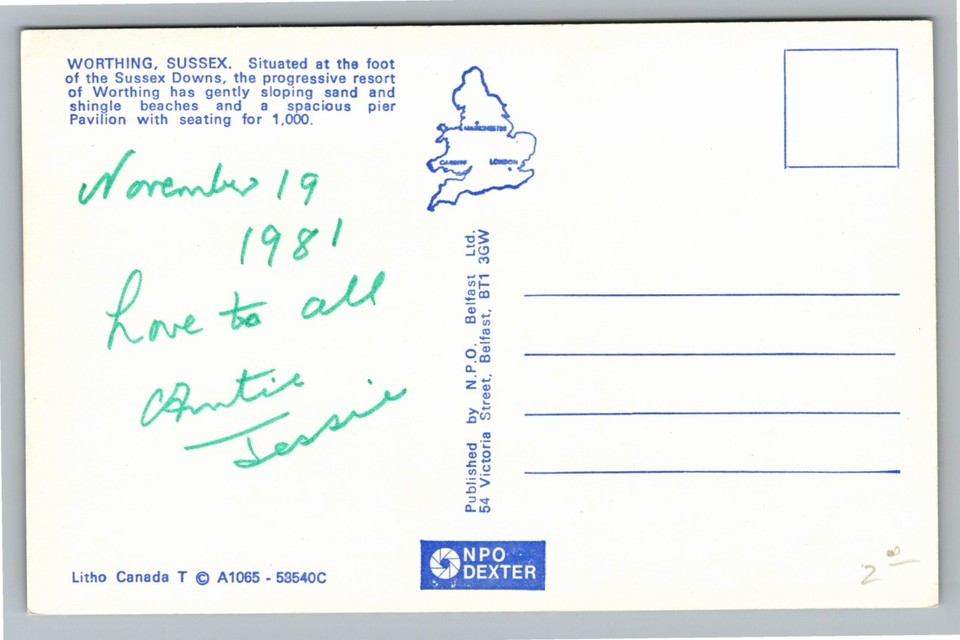 WORTHING, SUSSEX. Situated at the foot
of the Sussex Downs, the progressive resort
of Worthing has gently sloping sand and
shingle beaches and a spacious pier
Pavilion with seating for 1,000.
November 19
1981
Love to all
Antie
Jessie
MANCHESTER
CARDIFF LONDON
Published by N.P.O. Belfast Ltd.
54 Victoria Street, Belfast, BT1 3GW
Litho Canada T © A1065 - 53540C
NPO
DEXTER
2 00